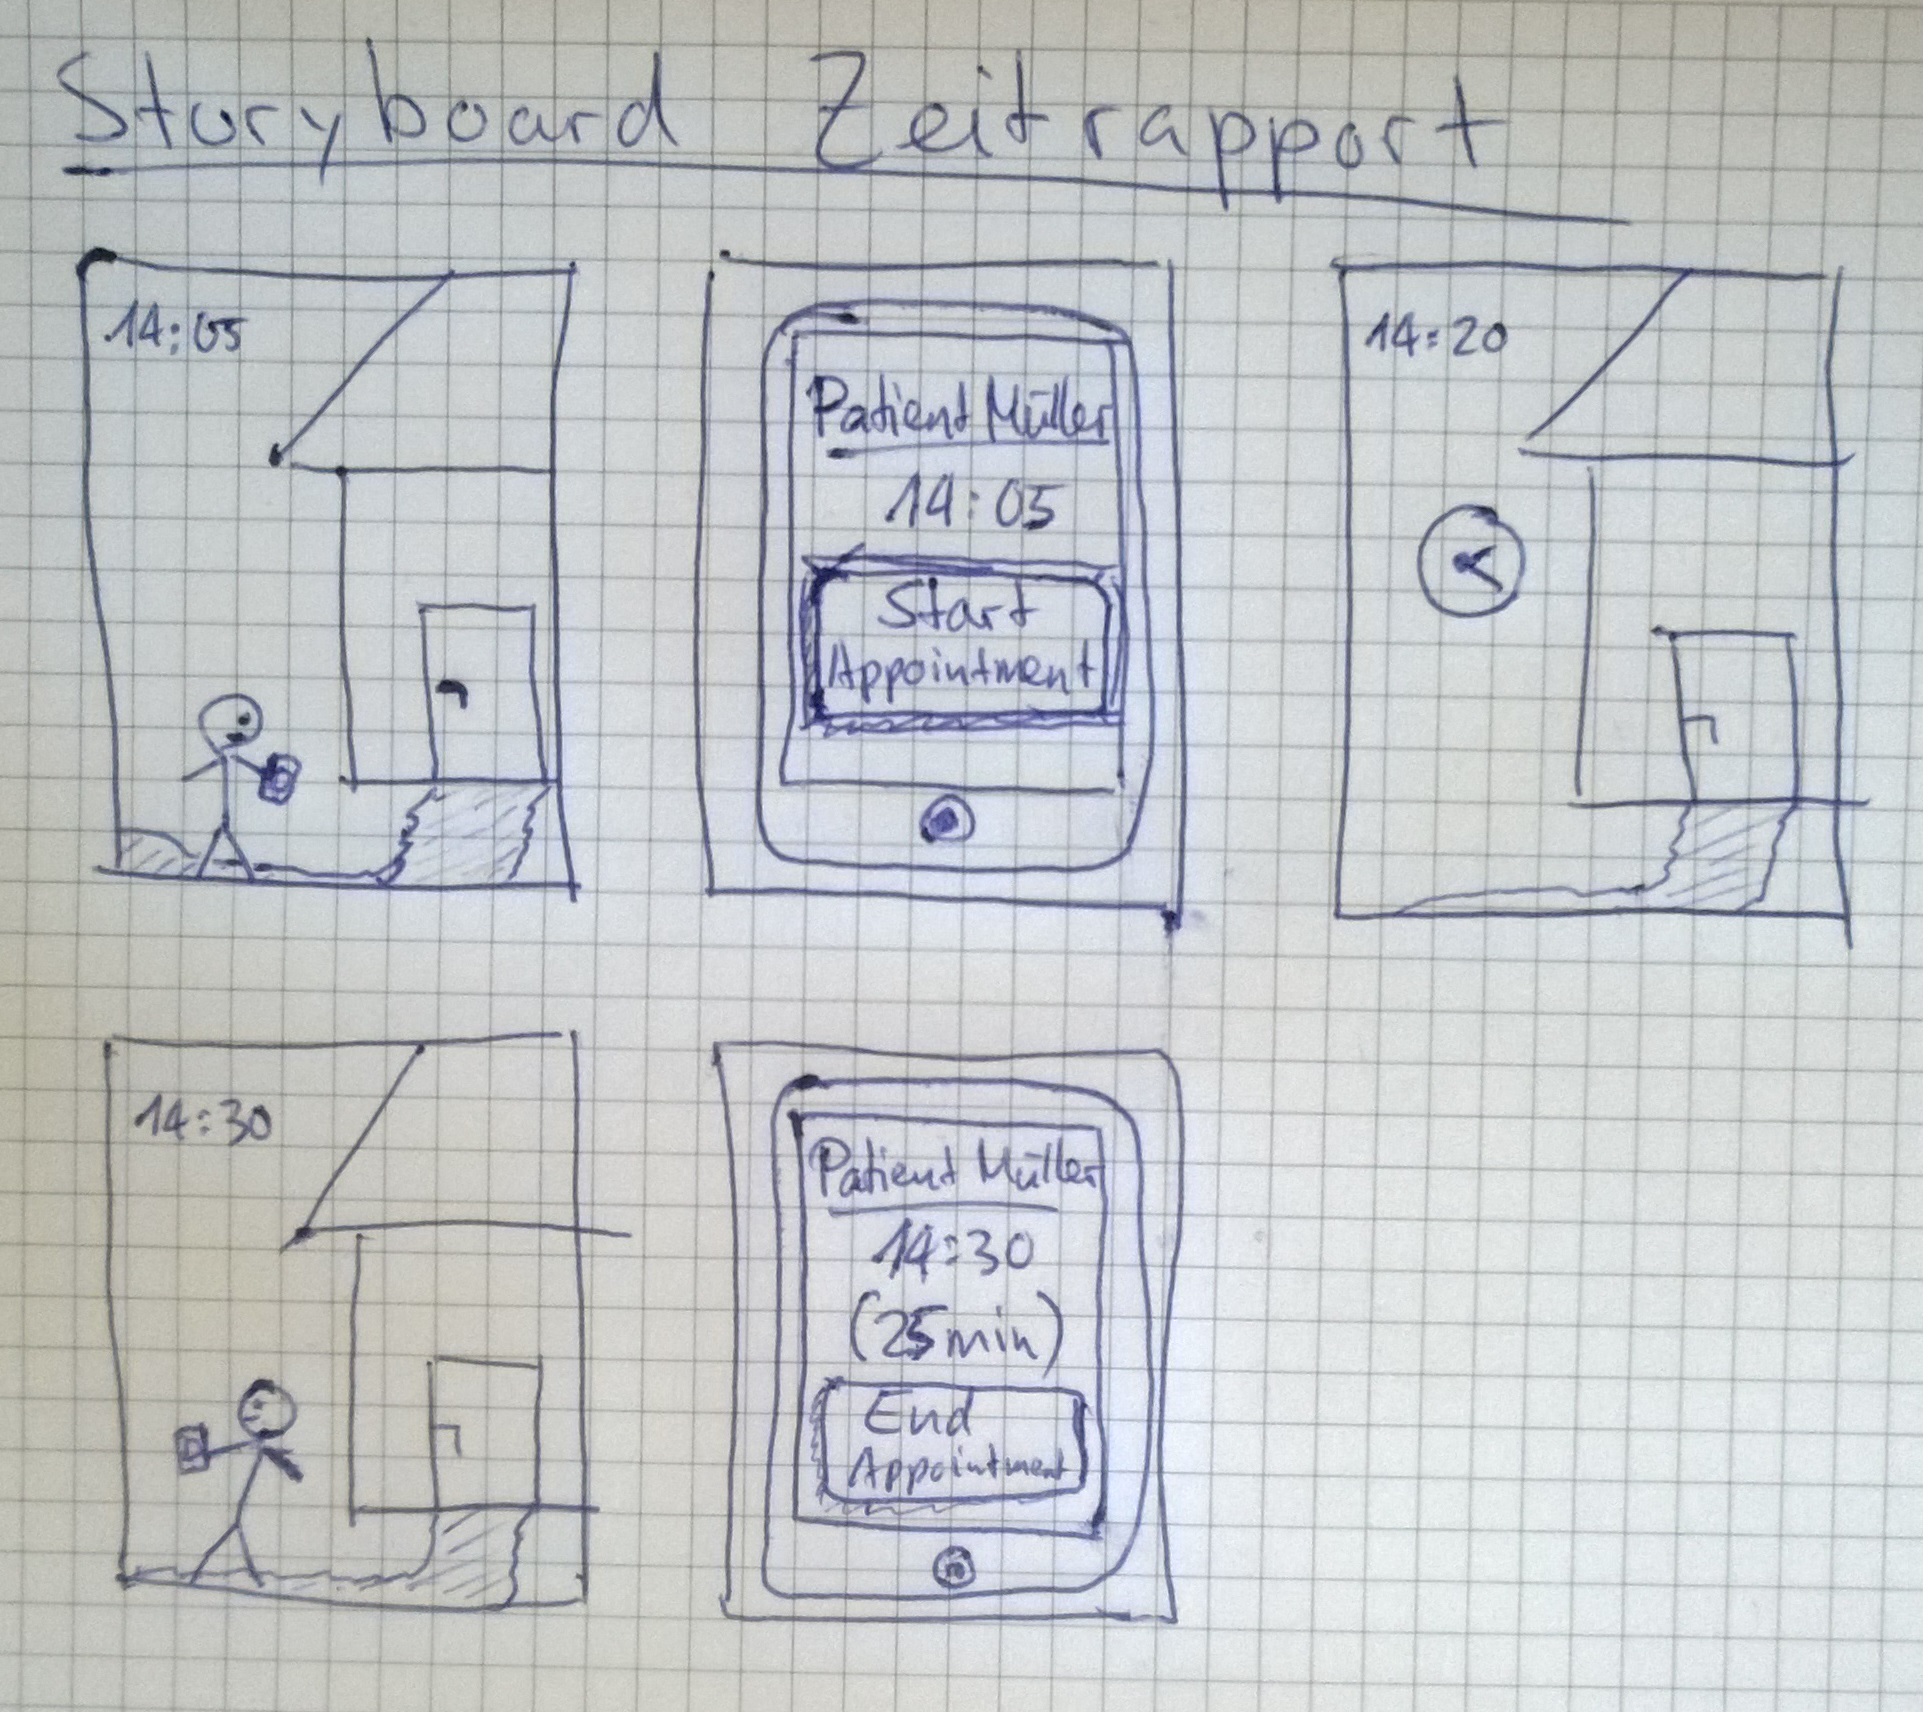 Storyboard Zeitrapport
14:05
Patient Müller
14:05
Start
Appointment
14:20
14:30
Patient Müller
14:30
(25min)
End
Appointment